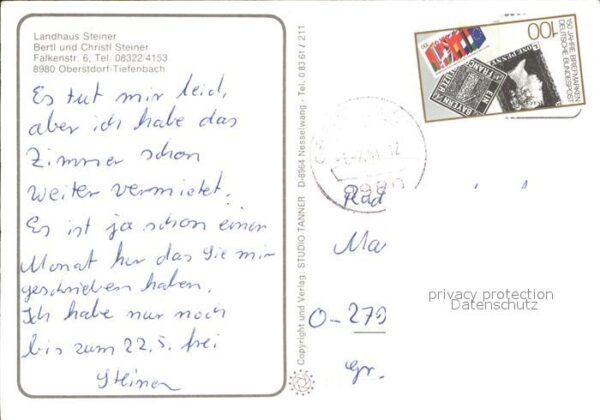 Landhaus Steiner
Bertl und Christl Steiner
Falkenstr. 6, Tel. 08322/4153
8980 Oberstdorf-Tiefenbach
Es tut mir leid,
aber ich habe das
Zimmer schon
weiter vermietet.
Es ist ja schon einen
Monat her das Sie mir
geschrieben haben.
Ich habe nur noch
bis zum 22.5. frei
Steiner
Copyright und Verlag: STUDIO TANNER D-8964 Nesselwang - Tel. 0 83 61 / 311
150 JAHRE BRIEFMARKEN
DEUTSCHE BUNDESPOST
100
ONE PENNY
BAYERN
EIN
FRANCO
8980
Ma
O-279
Gr.
privacy protection
Datenschutz